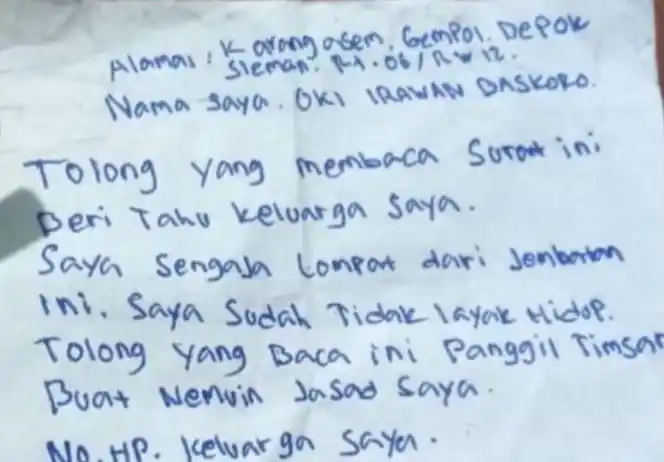 Alamat : Karangasem. Gempol. Depok
Sleman. RT. 06 / RW 12.
Nama saya. OKI IRAWAN BASKORO.
Tolong yang membaca Surat ini
Beri Tahu keluarga saya.
Saya Sengaja Lompat dari Jembatan
Ini. Saya Sudah Tidak layak Hidup.
Tolong yang Baca ini Panggil Timsar
Buat Nemuin Jasad Saya.
No. HP. Keluarga Saya.